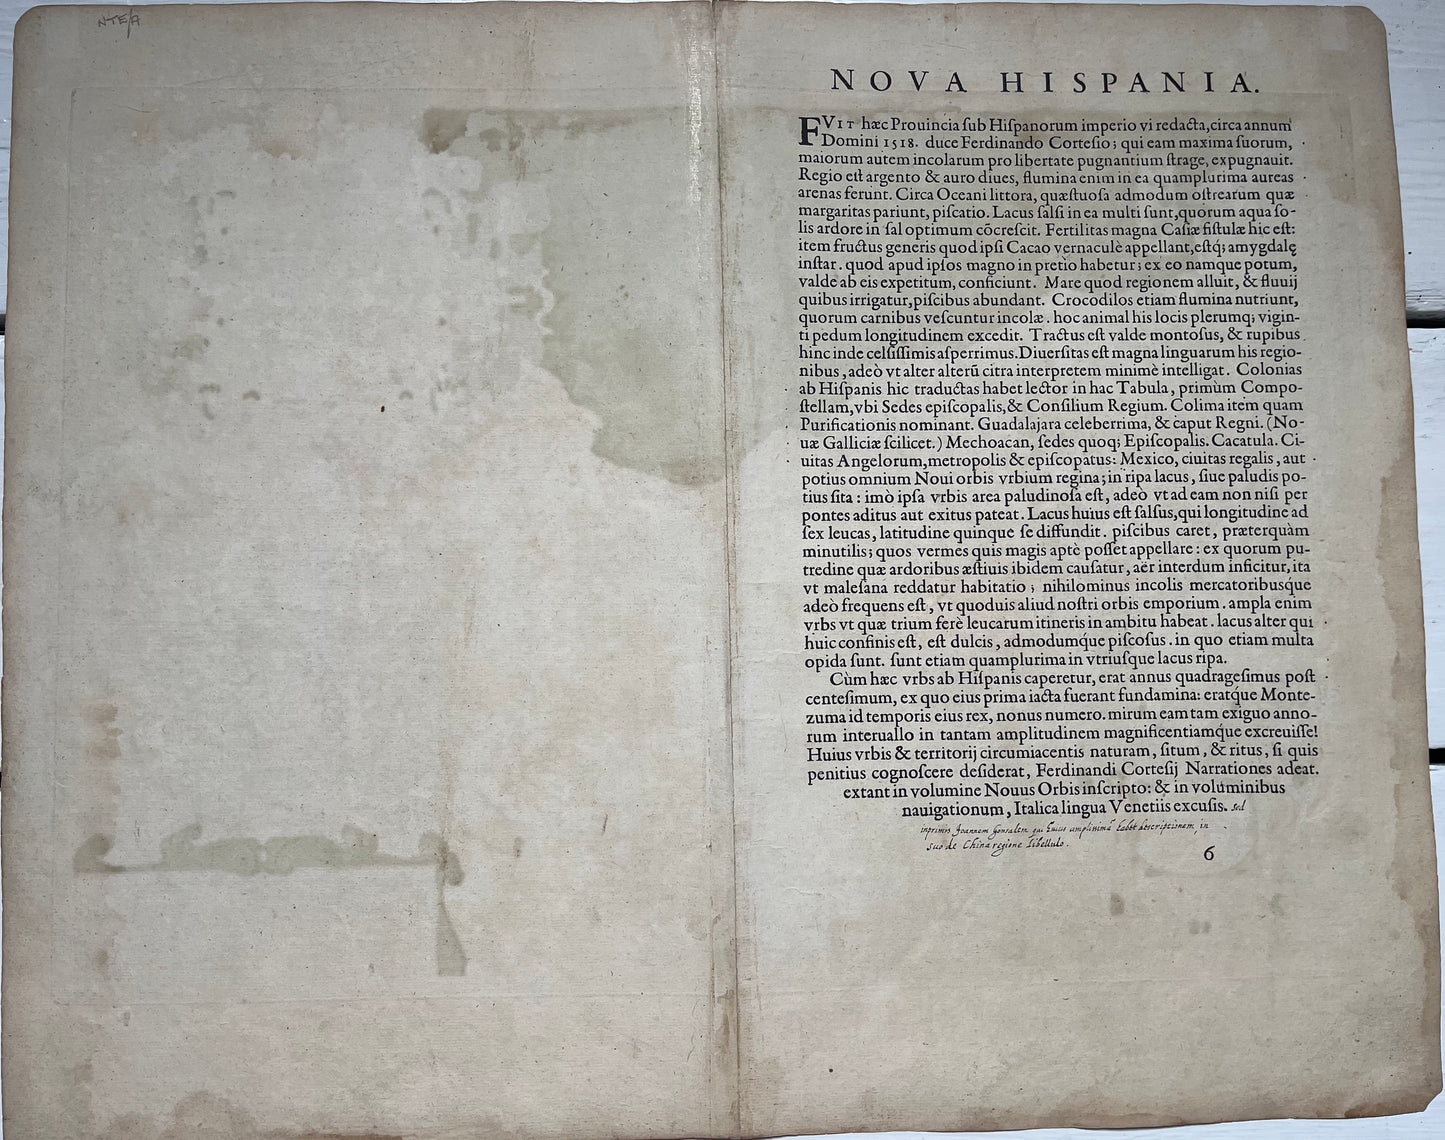 NTE/A
NOVA HISPANIA.
FVIT hæc Prouincia ſub Hiſpanorum imperio vi redacta, circa annum
Domini 1518. duce Ferdinando Corteſio; qui eam maxima ſuorum,
maiorum autem incolarum pro libertate pugnantium ſtrage, expugnauit.
Regio eſt argento & auro diues, flumina enim in ea quamplurima aureas
arenas ferunt. Circa Oceani littora, quæſtuoſa admodum oſtrearum quæ
margaritas pariunt, piſcatio. Lacus ſalſi in ea multi ſunt, quorum aqua ſo-
lis ardore in ſal optimum cōcreſcit. Fertilitas magna Caſiæ fiſtulæ hic eſt:
item fructus generis quod ipſi Cacao vernaculè appellant, eſtq; amygdalę
inſtar. quod apud ipſos magno in pretio habetur; ex eo namque potum,
valde ab eis expetitum, conficiunt. Mare quod regionem alluit, & fluuij
quibus irrigatur, piſcibus abundant. Crocodilos etiam flumina nutriunt,
quorum carnibus veſcuntur incolæ. hoc animal his locis plerumq; vigin-
ti pedum longitudinem excedit. Tractus eſt valde montoſus, & rupibus
hinc inde celſiſſimis aſperrimus. Diuerſitas eſt magna linguarum his regio-
nibus, adeò vt alter alterũ citra interpretem minimè intelligat. Colonias
ab Hiſpanis hic traductas habet lector in hac Tabula, primùm Compo-
ſtellam, vbi Sedes epiſcopalis, & Conſilium Regium. Colima item quam
Purificationis nominant. Guadalajara celeberrima, & caput Regni. (No-
uæ Galliciæ ſcilicet.) Mechoacan, ſedes quoq; Epiſcopalis. Cacatula. Ci-
uitas Angelorum, metropolis & epiſcopatus: Mexico, ciuitas regalis, aut
potius omnium Noui orbis vrbium regina; in ripa lacus, ſiue paludis po-
tius ſita: imò ipſa vrbis area paludinoſa eſt, adeò vt ad eam non niſi per
pontes aditus aut exitus pateat. Lacus huius eſt ſalſus, qui longitudine ad
ſex leucas, latitudine quinque ſe diffundit. piſcibus caret, præterquàm
minutilis; quos vermes quis magis aptè poſſet appellare: ex quorum pu-
tredine quæ ardoribus æſtiuis ibidem cauſatur, aër interdum inficitur, ita
vt maleſana reddatur habitatio; nihilominus incolis mercatoribusq́ue
adeò frequens eſt, vt quoduis aliud noſtri orbis emporium. ampla enim
vrbs vt quæ trium ferè leucarum itineris in ambitu habeat. lacus alter qui
huic confinis eſt, eſt dulcis, admodumq́ue piſcoſus. in quo etiam multa
opida ſunt. ſunt etiam quamplurima in vtriuſque lacus ripa.
Cùm hæc vrbs ab Hiſpanis caperetur, erat annus quadrageſimus poſt
centeſimum, ex quo eius prima iacta fuerant fundamina: eratq́ue Monte-
zuma id temporis eius rex, nonus numero. mirum eam tam exiguo anno-
rum interuallo in tantam amplitudinem magnificentiamq́ue excreuiſſe!
Huius vrbis & territorij circumiacentis naturam, ſitum, & ritus, ſi quis
penitius cognoſcere deſiderat, Ferdinandi Corteſij Narrationes adeat.
extant in volumine Nouus Orbis inſcripto: & in voluminibus
nauigationum, Italica lingua Venetiis excuſis. sed
inprimis Joannem Gonsalem qui huius amplissimã habet descriptionem, in
suo de China regione libellulo.
6